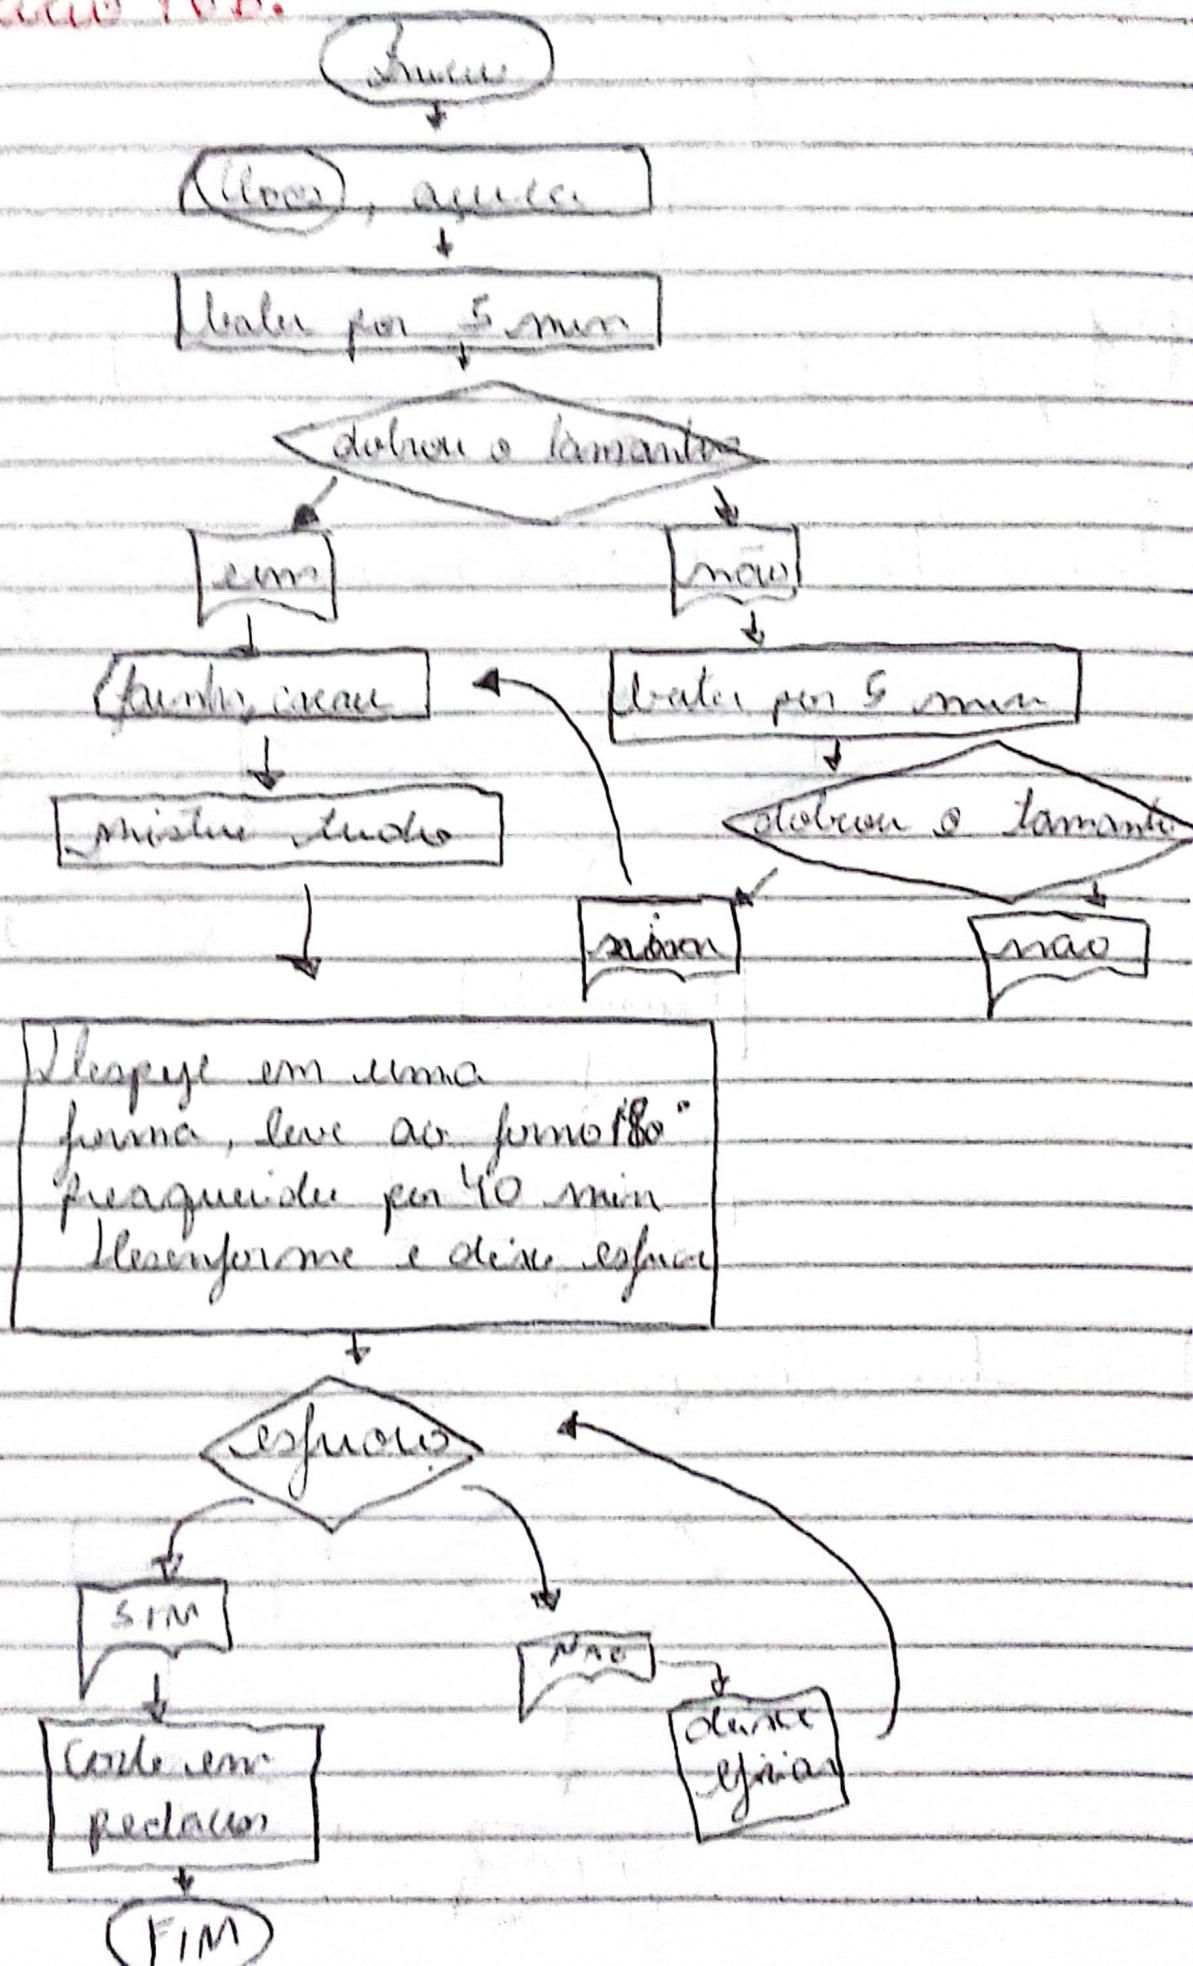 Inicio
Ovos, açucar
bater por 5 min
dobrou o tamanho
sim
não
farinha, cacau
bater por 5 min
misture tudo
dobrou o tamanho
não
Despeje em uma
forma, leve ao forno 180°
preaquecido por 40 min
Desenforme e deixe esfriar
esfriou
SIM
NÃO
deixe
esfriar
Corte em
pedacos
FIM